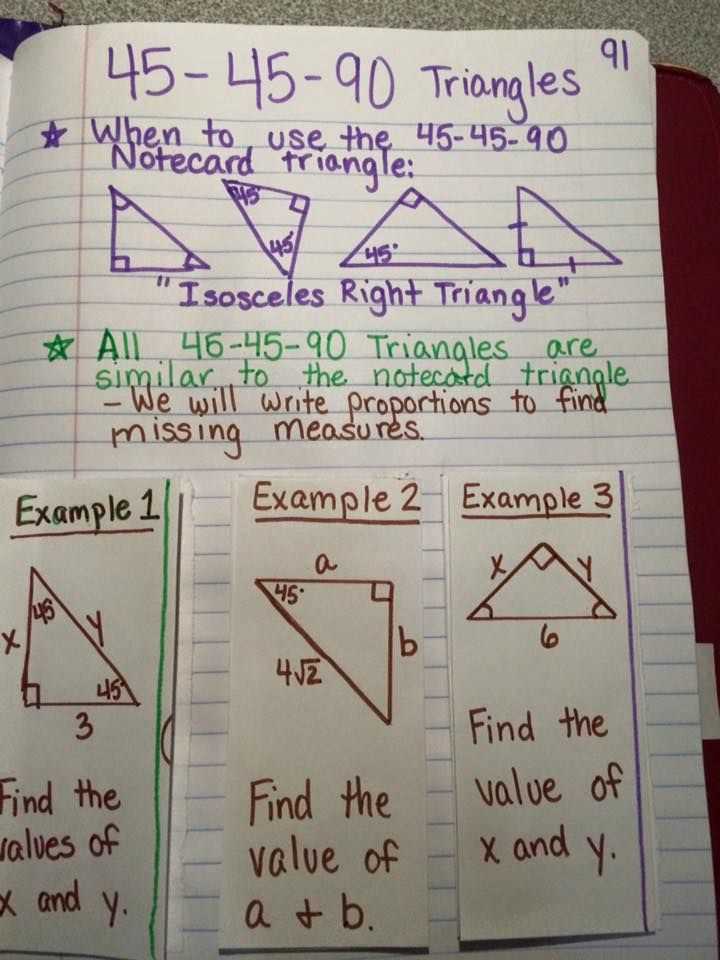 91
45-45-90 Triangles
☆ When to use the 45-45-90
Notecard triangle:
45°
45°
45°
"Isosceles Right Triangle"
☆ All 46-45-90 Triangles are
similar to the notecard triangle
- We will write proportions to find
missing measures.
Example 1
45
x
y
45°
3
Find the
values of
x and y.
Example 2
a
45°
b
4√2
Find the
value of
a + b.
Example 3
x
y
6
Find the
value of
x and y.